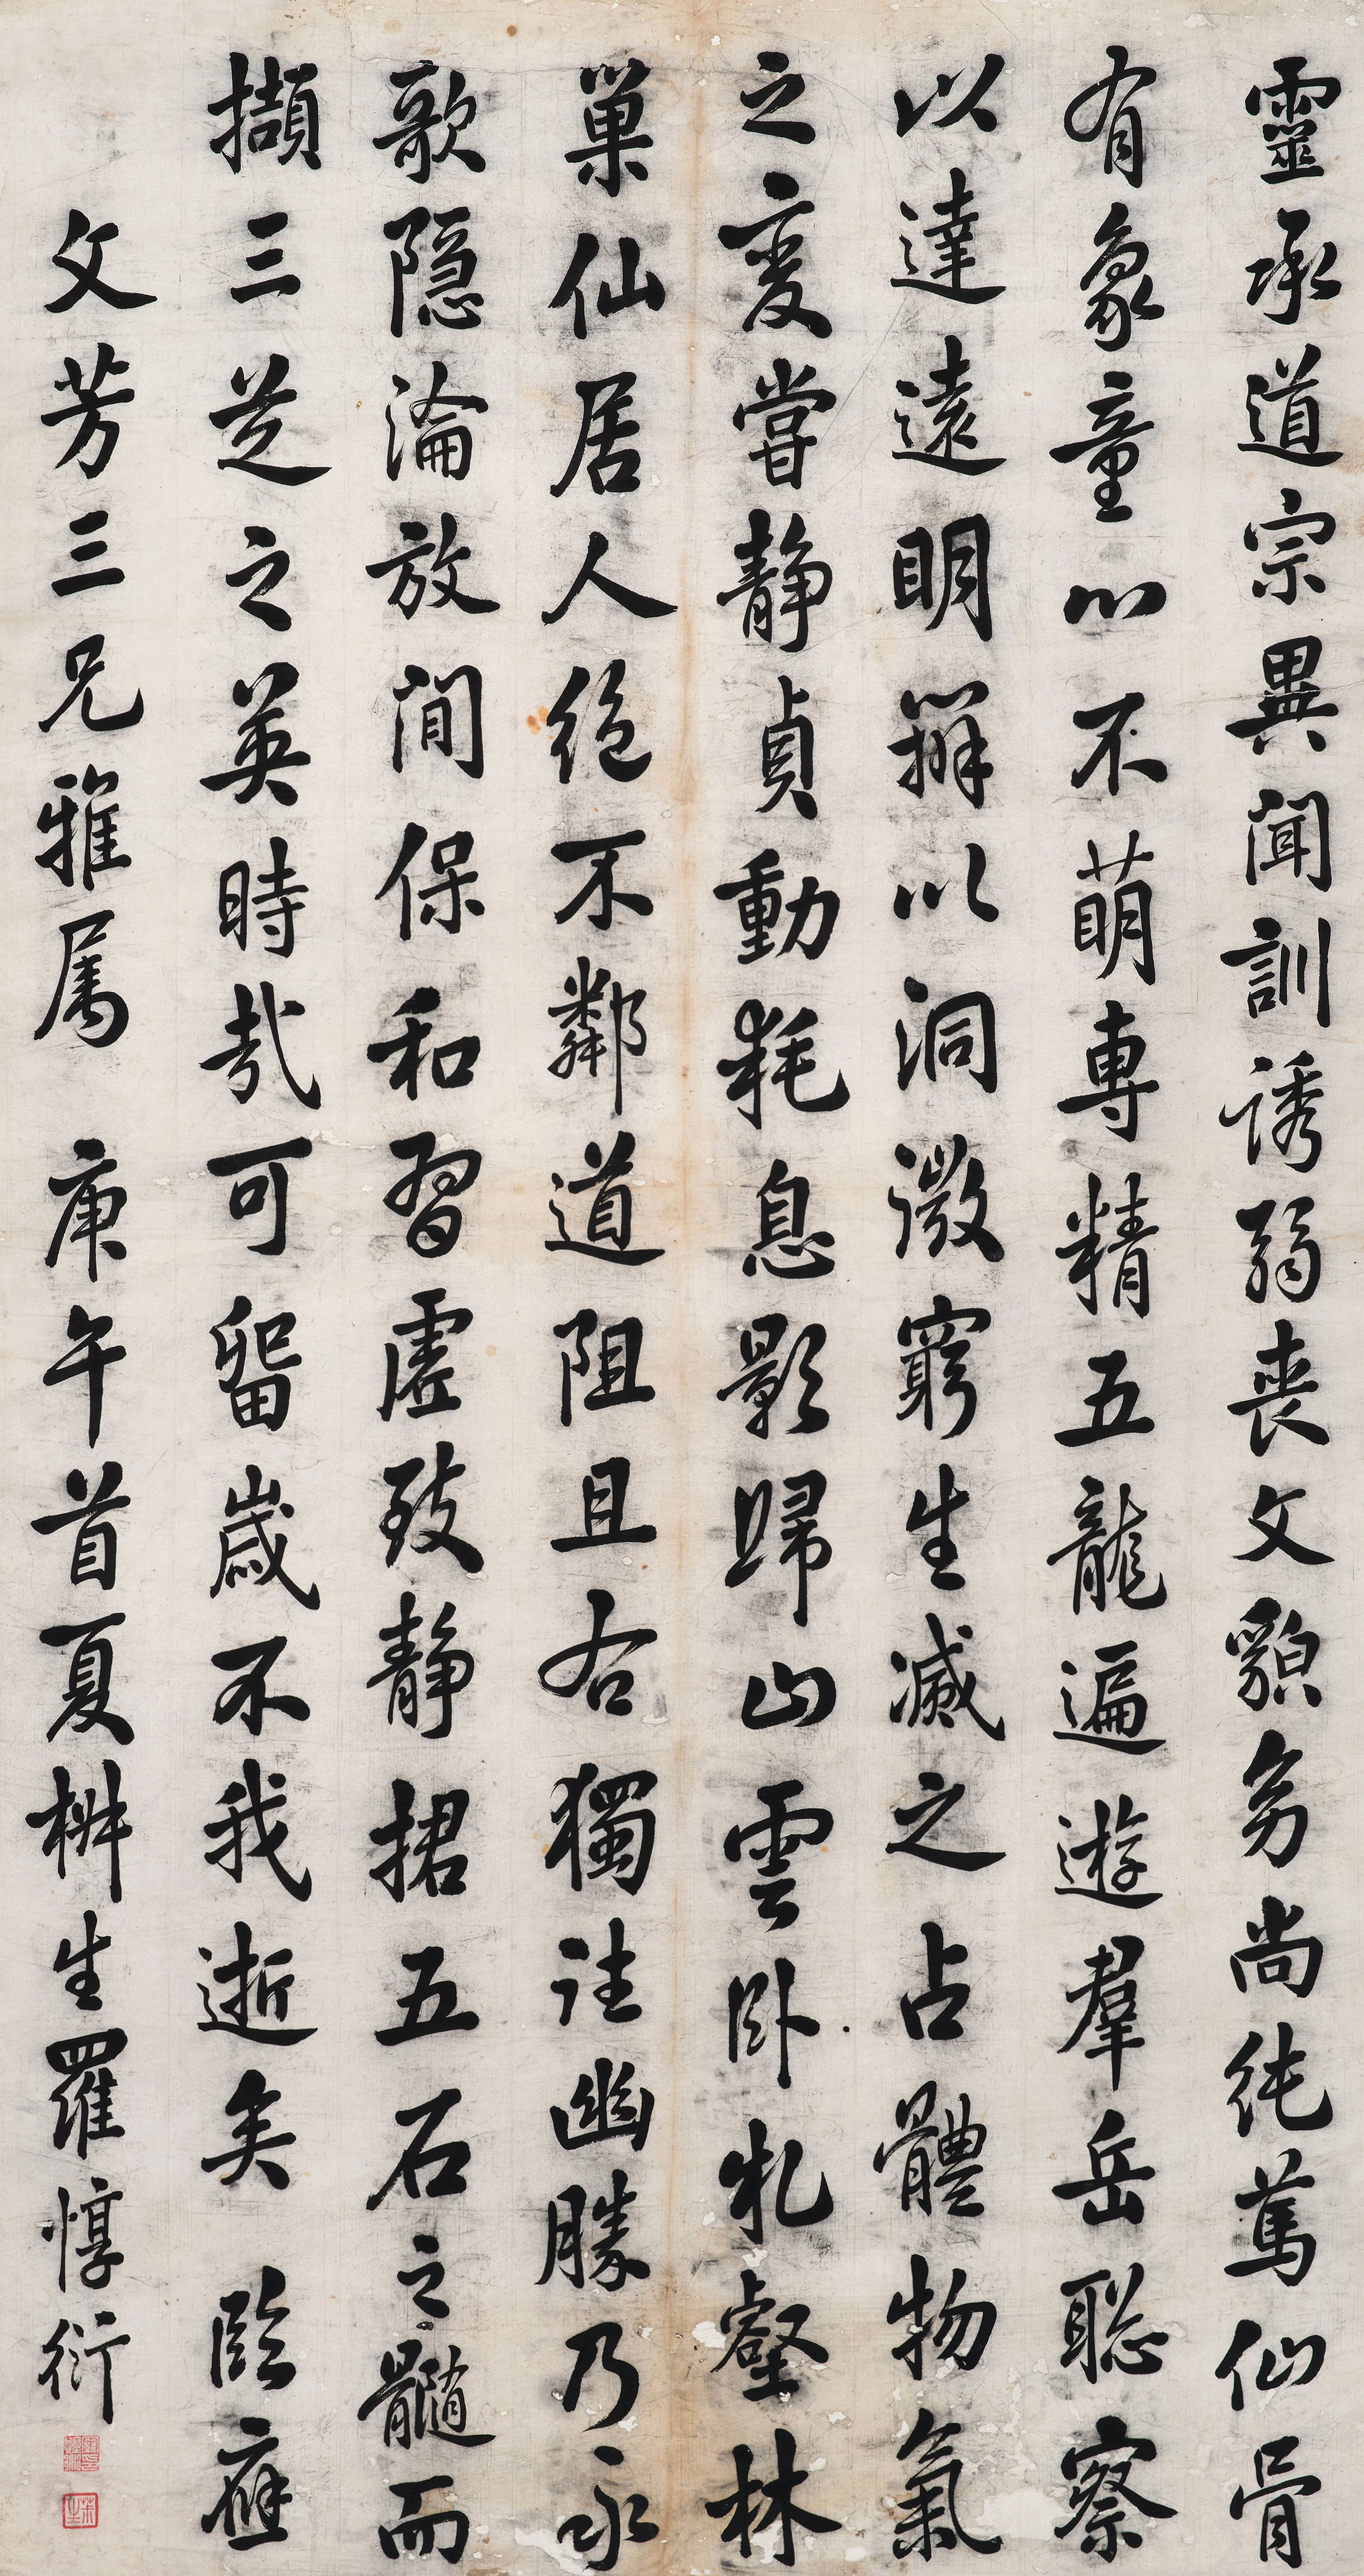 靈承道宗異聞訓誘弱喪文貌多尚純篤仙骨
有象童心不萌專精五龍遍遊羣岳聡察
以達遠明辯以洞微窮生滅之占體物氣
之變嘗静貞動耗息影歸山雲卧札壑林
巢仙居人絶不鄰道阻且右獨詿幽勝乃永
歌隐淪放閒保和習虛致静捃五石之髓而
擷三芝之英時哉可留歲不我逝矣 臨應
文芳三兄雅属 庚午首夏栟生羅惇衍